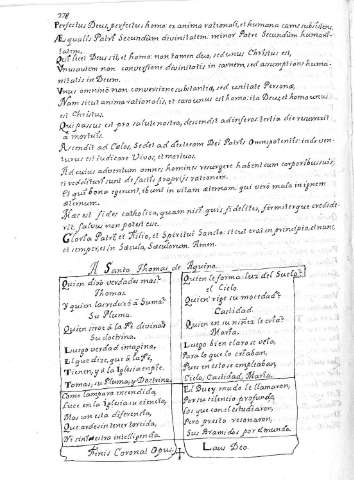 278
Perfectus Deus, perfectus homo: ex anima rationali, et humana carne subsistens.
Æqualis Patri Secundum divinitatem: minor Patre Secundum humani-
tatem.
Qui licet Deus sit, et homo: non tamen duo, sed unus Christus est,
Unus autem non conversione divinitatis in carnem, sed assumptione huma-
nitatis in Deum.
Unus omnino non conversione substantiæ, sed unitate Personæ.
Nam sicut anima rationalis, et caro unus est homo: ita Deus, et homo unus
est Christus.
Qui passus est pro salute nostra, descendit ad inferos: tertia die resurrexit
a mortuis.
Ascendit ad Cælos, Sedet ad dexteram Dei Patris Omnipotentis: inde ven-
turus est iudicare Vivos, et mortuos.
Ad cuius adventum omnes homines resurgere habent cum corporibus suis;
et reddituri sunt de factis proprijs rationem.
Et qui bona egerunt, ibunt in vitam æternam: qui vero mala in ignem
æternum.
Hæc est fides catholica, quam nisi quis fideliter, firmiterque credide-
rit, salvus non poterit esse.
Gloria Patri, et Filio, et Spiritui Sancto: sicut erat in principio, et nunc,
et semper, et in Sæcula Sæculorum. Amen.
A Santo Thomas de Aquino.
Quien dixo verdades mas?
Thomas.
Y quien las reduxo à Suma?
Su Pluma.
Quien sirve à la Fè divina?
Su doctrina.
Luego verdad imagina,
El que dize, que à la Fè,
Tienen, y à la Iglesia en pie
Tomas, su Pluma, y Doctrina.
Como lampara encendida,
Luce en la Iglesia su ciencia,
Mas con esta diferencia,
Que arde sin tener torcida,
Ni siniestra inteligencia.
Finis Coronat Opus.
Quien le forma luz del Suelo?
el Cielo.
Quien rige su mocedad?
Castidad.
Quien en su niñez le
Marta.
Luego bien claro se vela,
Para lo que le
Pues en esto se empleaban,
Cielo, Castidad, Marta.
El Buey mudo le llamaron,
Por su silencio profundo,
Los que con el estudiaron,
Pero presto resonaron,
Sus Bramidos por el mundo.
Laus Deo.